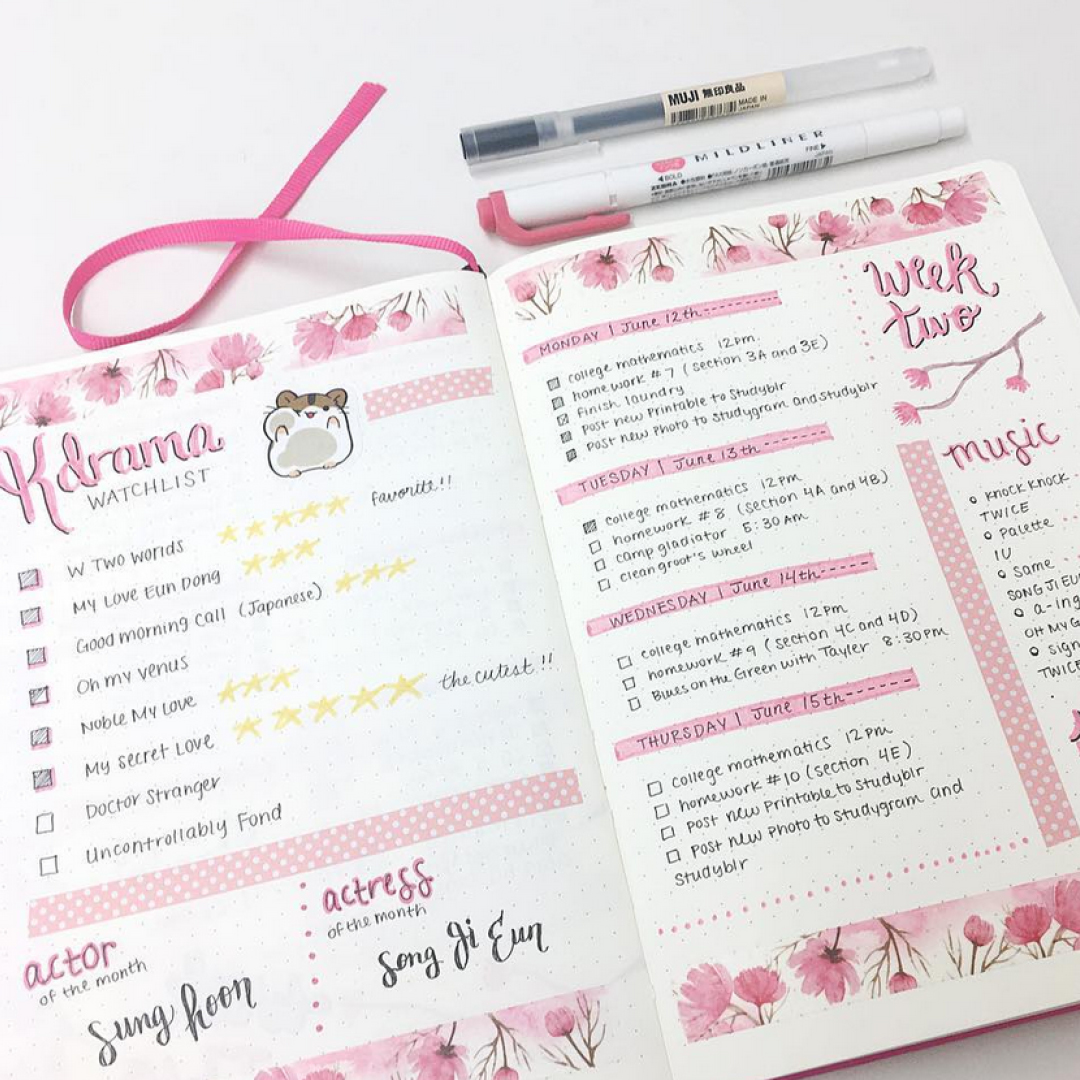 MUJI 無印良品
MADE IN
JAPAN
MILDLINER
BOLD
FINE
ZEBRA
JAPAN
Kdrama
WATCHLIST
W Two Worlds
favorite!!
My Love Eun Dong
Good morning call (Japanese)
Oh my venus
Noble My Love
My secret Love
the cutest!!
Doctor Stranger
Uncontrollably Fond
actor
of the month
Sung hoon
actress
of the month
Song Ji Eun
MONDAY | June 12th
college mathematics 12pm
homework #7 (section 3A and 3E)
Finish laundry
Post new Printable to Studyblr
Post new Photo to studygram and studyblr
TUESDAY | June 13th
college mathematics 12pm
homework #8 (section 4A and 4B)
camp gladiator 5:30 AM
clean groot's wheel
WEDNESDAY | June 14th
college mathematics 12pm
homework #9 (section 4C and 4D)
Blues on the Green with Tayler 8:30 PM
THURSDAY | June 15th
college mathematics 12pm
homework #10 (section 4E)
Post new Printable to studyblr
Post new Photo to studygram and
Studyblr
week
two
music
KNOCK KNOCK -
TWICE
Palette
IU
Same
SONG JI EU
a-ing
OH MY G
sign
TWICE